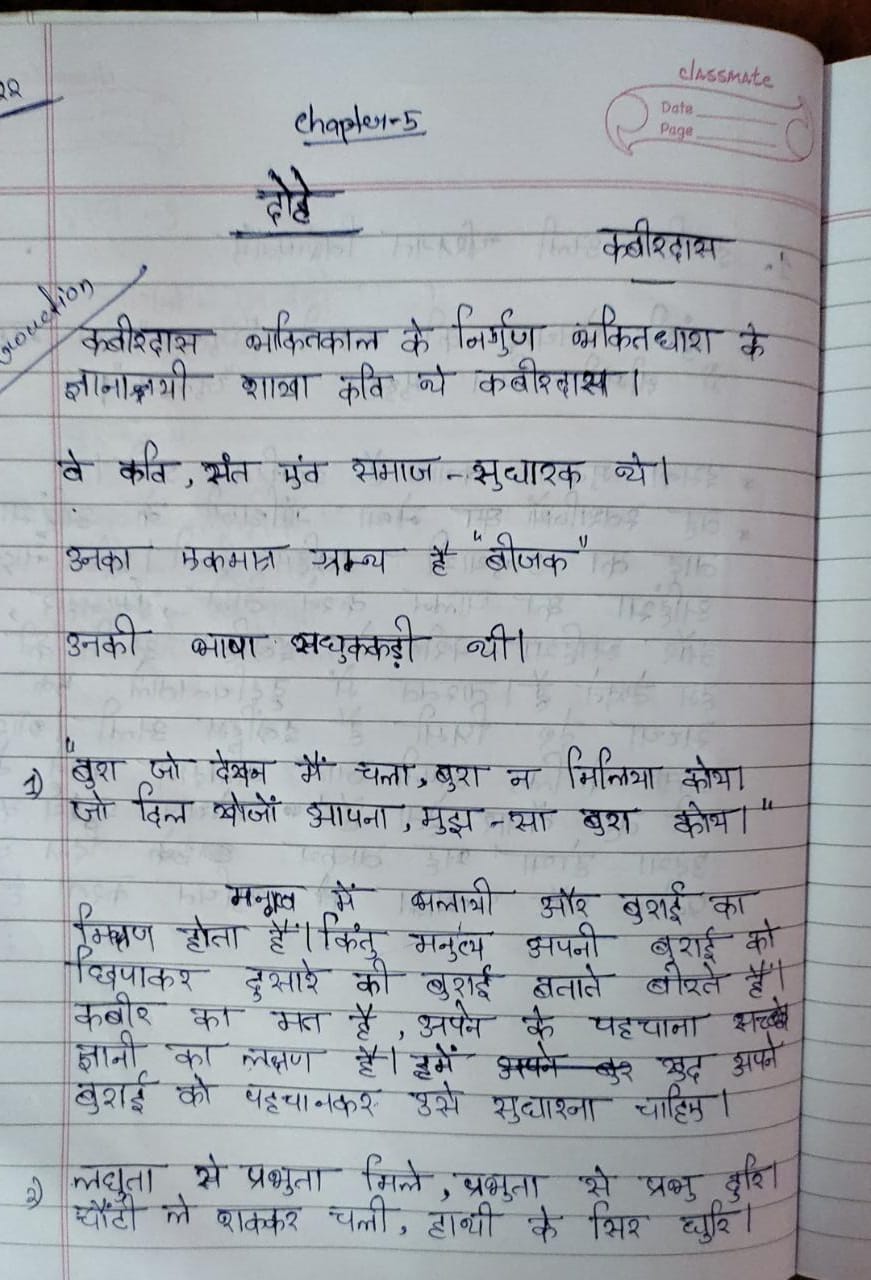 22
classmate
Date
Page
Chapter-5
दोहे
कबीरदास
कबीरदास भक्तिकाल के निर्गुण भक्तिधारा के
ज्ञानाश्रयी शाखा कवि थे कबीरदास।
वे कवि, संत एंव समाज-सुधारक थे।
उनका एकमात्र ग्रन्थ है "बीजक"
उनकी भाषा सधुक्कड़ी थी।
1) "बुरा जो देखन मैं चला, बुरा न मिलिया कोय।
जो दिल खोजों आपना, मुझ-सा बुरा कोय।"
में भलायी और बुराई का
मिश्रण होता है। किंतु मनुष्य अपनी बुराई को
छिपाकर दुसारे की बुराई बताते है।
कबीर का मत है, अपने के पहचाना सच्चे
ज्ञानी का लक्षण है। हमें अपने बुर खुद अपने
बुराई को पहचानकर उसे सुधारना चाहिए।
2) लघुता से प्रभुता मिले, प्रभुता से प्रभु दुरि।
चींटी ले शक्कर चली, हाथी के सिर धुरि।